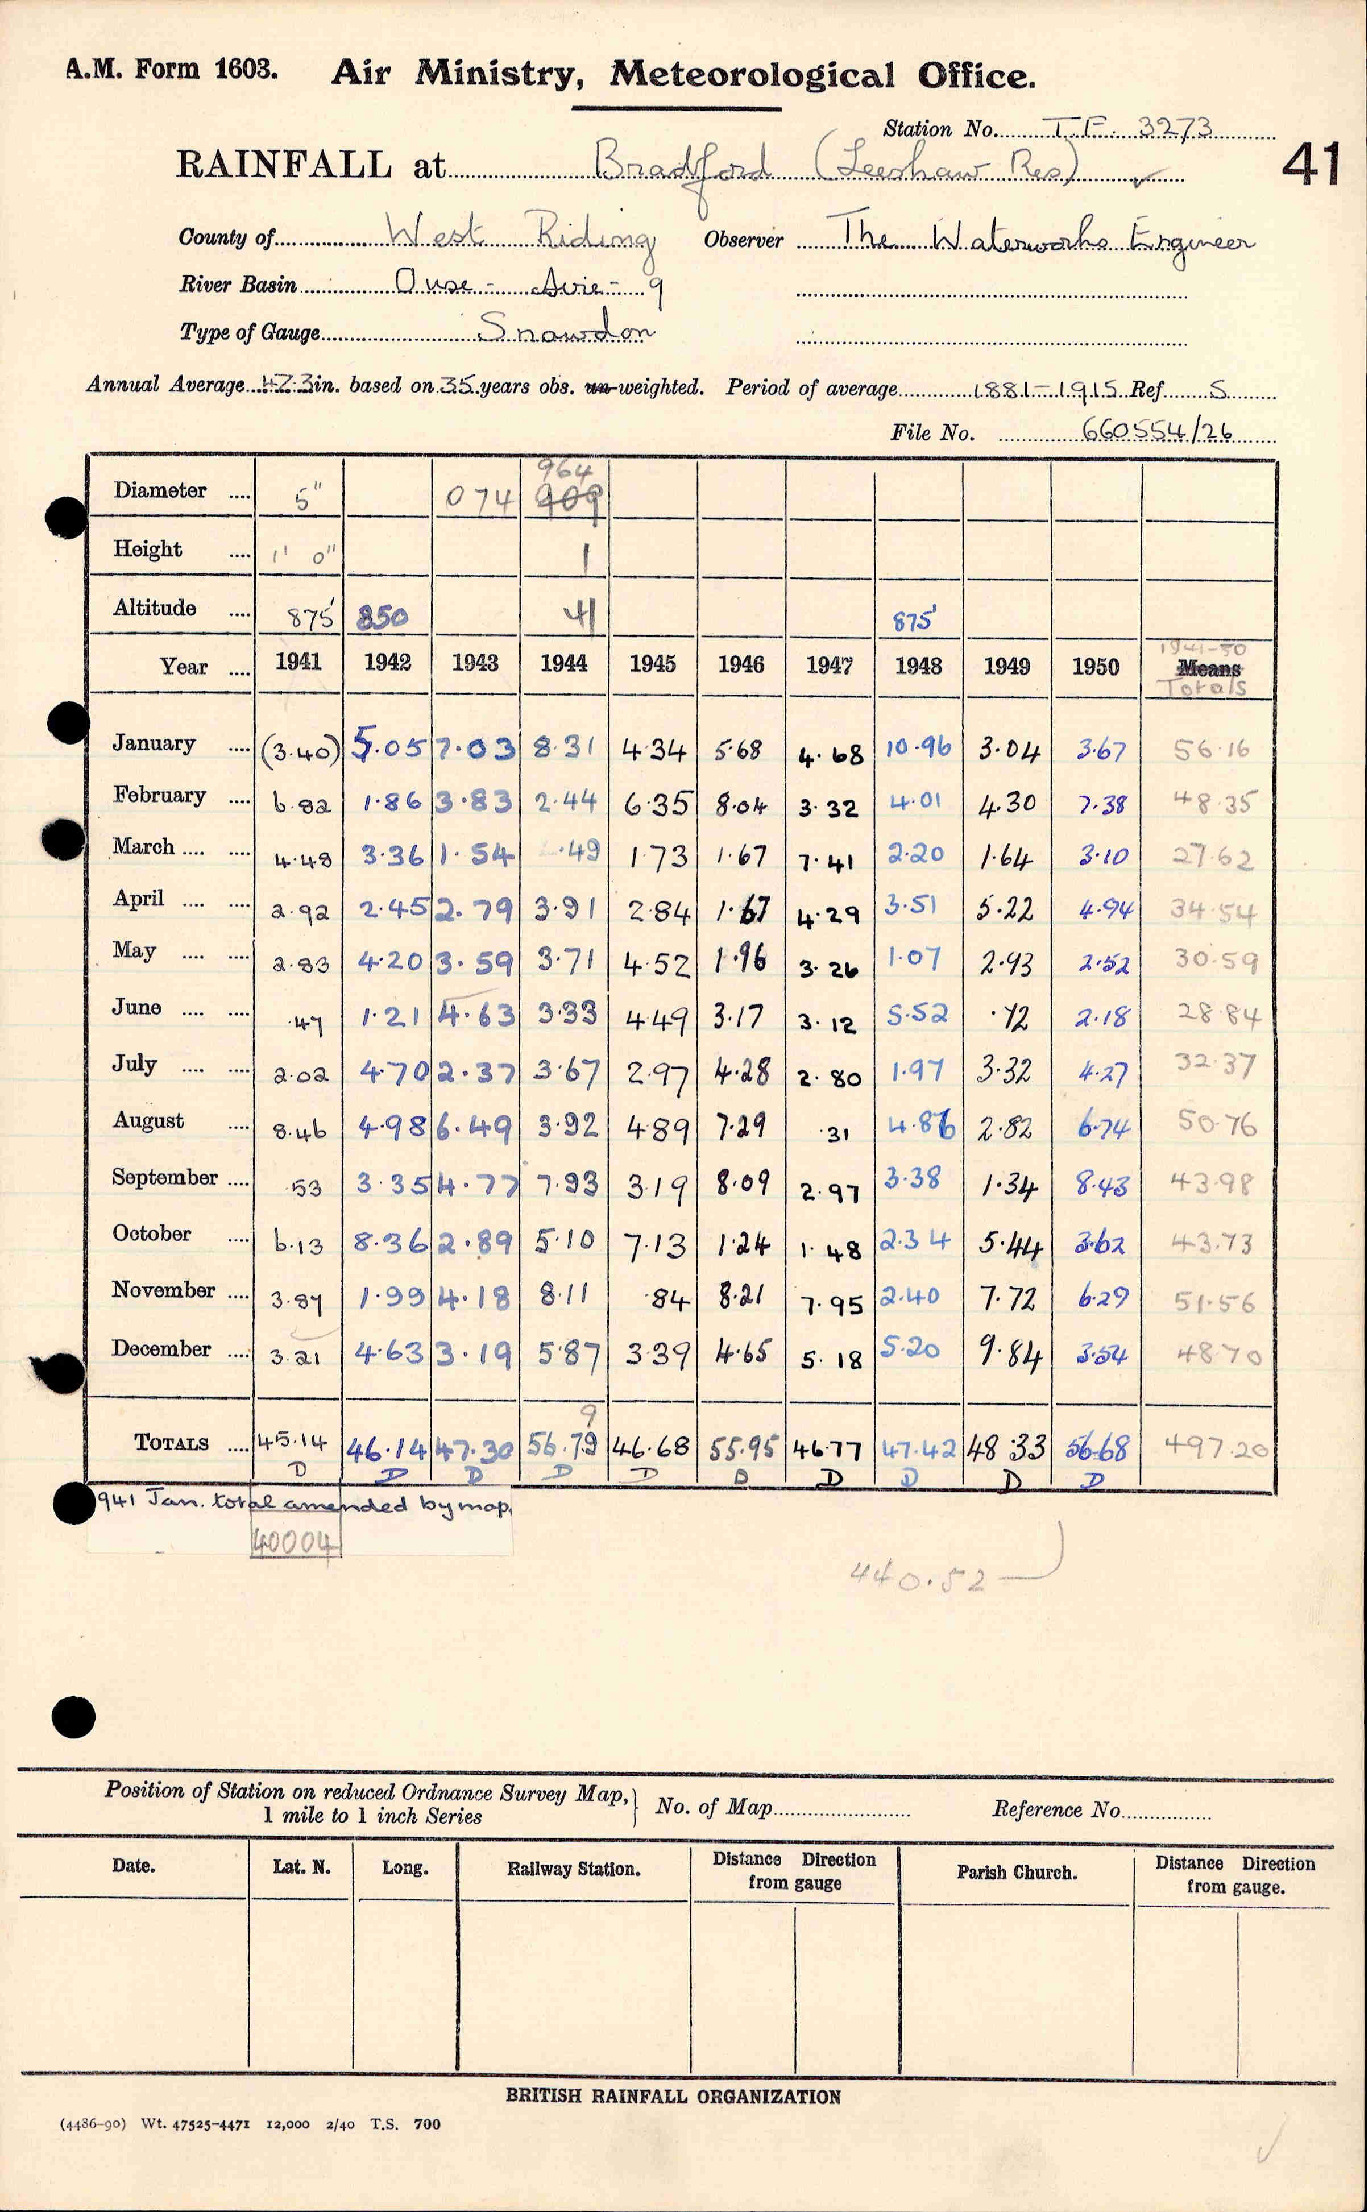 A.M. Form 1603. Air Ministry, Meteorological Office.
Station No. T.F. 3273
RAINFALL at Bradford (Leeshaw Res) ✓ 41
County of West Riding Observer The Waterworks Engineer
River Basin Ouse - Aire - 9
Type of Gauge Snowdon
Annual Average 47.3 in. based on 35 years obs. un-weighted. Period of average 1881-1915 Ref. S
File No. 660554/26
964
Diameter .... 5" 074 909
Height .... 1' 0" 1
Altitude .... 875' 850 41 875'
1941-50
Year .... 1941 1942 1943 1944 1945 1946 1947 1948 1949 1950 Means
Totals
January .... (3.40) 5.05 7.03 8.31 4.34 5.68 4.68 10.96 3.04 3.67 56.16
February .... 6.82 1.86 3.83 2.44 6.35 8.04 3.32 4.01 4.30 7.38 48.35
March .... .... 4.48 3.36 1.54 .49 1.73 1.67 7.41 2.20 1.64 3.10 27.62
April .... .... 2.92 2.45 2.79 3.91 2.84 1.67 4.29 3.51 5.22 4.94 34.54
May .... .... 2.83 4.20 3.59 3.71 4.52 1.96 3.26 1.07 2.93 2.52 30.59
June .... .... .47 1.21 4.63 3.33 4.49 3.17 3.12 5.52 .72 2.18 28.84
July .... .... 2.02 4.70 2.37 3.67 2.97 4.28 2.80 1.97 3.32 4.27 32.37
August .... 8.46 4.98 6.49 3.92 4.89 7.29 .31 4.86 2.82 6.74 50.76
September .... .53 3.35 4.77 7.93 3.19 8.09 2.97 3.38 1.34 8.43 43.98
October .... 6.13 8.36 2.89 5.10 7.13 1.24 1.48 2.34 5.44 3.62 43.73
November .... 3.87 1.99 4.18 8.11 .84 8.21 7.95 2.40 7.72 6.29 51.56
December .... 3.21 4.63 3.19 5.87 3.39 4.65 5.18 5.20 9.84 3.54 48.70
9
TOTALS .... 45.14 46.14 47.30 56.79 46.68 55.95 46.77 47.42 48.33 56.68 497.20
D D D D D D D D D D
941 Jan. total amended by map.
40004
440.52
Position of Station on reduced Ordnance Survey Map, 1 mile to 1 inch Series } No. of Map Reference No.
Date. Lat. N. Long. Railway Station. Distance Direction from gauge Parish Church. Distance Direction from gauge.
BRITISH RAINFALL ORGANIZATION
(4486-90) Wt. 47525-4471 12,000 2/40 T.S. 700
✓